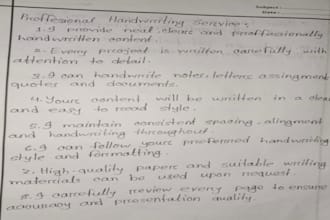 Subject:
Date:
Proffesional Handwriting Service:
1. I provide neat, clear and proffessionally
handwritten content.
2. Every project is written carefully with
attention to detail.
3. I can handwrite notes, letters assingment
quotes and documents.
4. Your content will be written in a clea
and easy to read style.
5. I maintain consistent spacing, alingment
and handwriting throughout.
6. I can follow your preferred handwriting
style and formatting.
7. High-quality paper and suitable writing
materials can be used upon request.
8. I carefully review every page to ensure
accuracy and presentation quality.